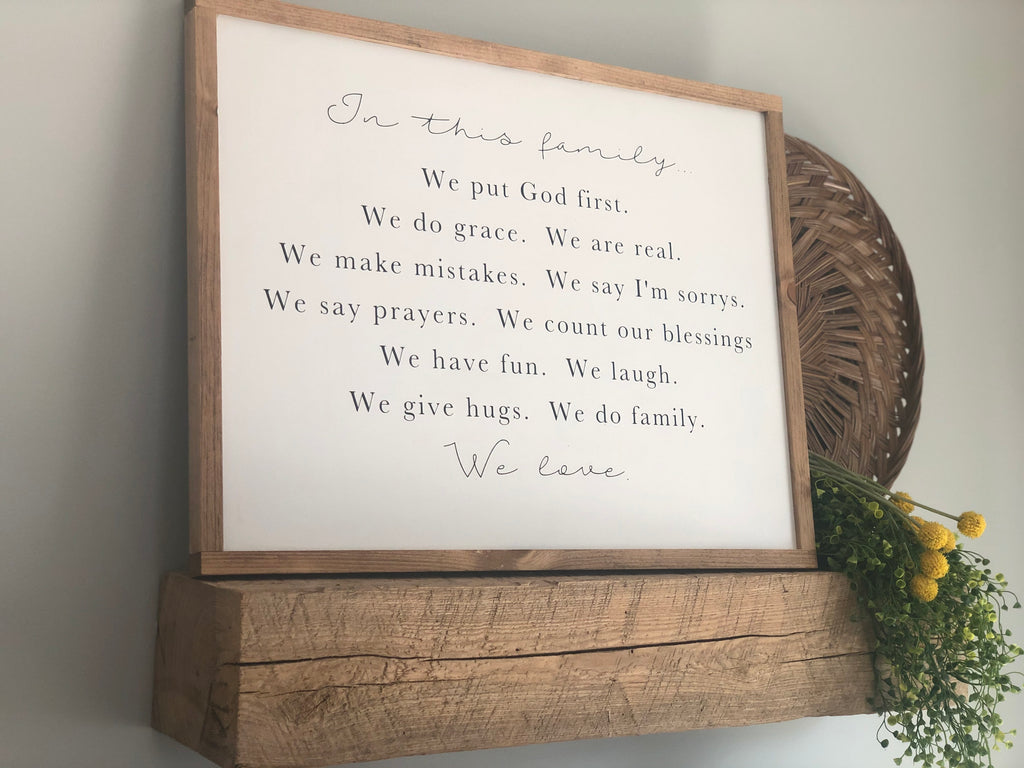 In this family...
We put God first.
We do grace. We are real.
We make mistakes. We say I'm sorrys.
We say prayers. We count our blessings
We have fun. We laugh.
We give hugs. We do family.
We love.